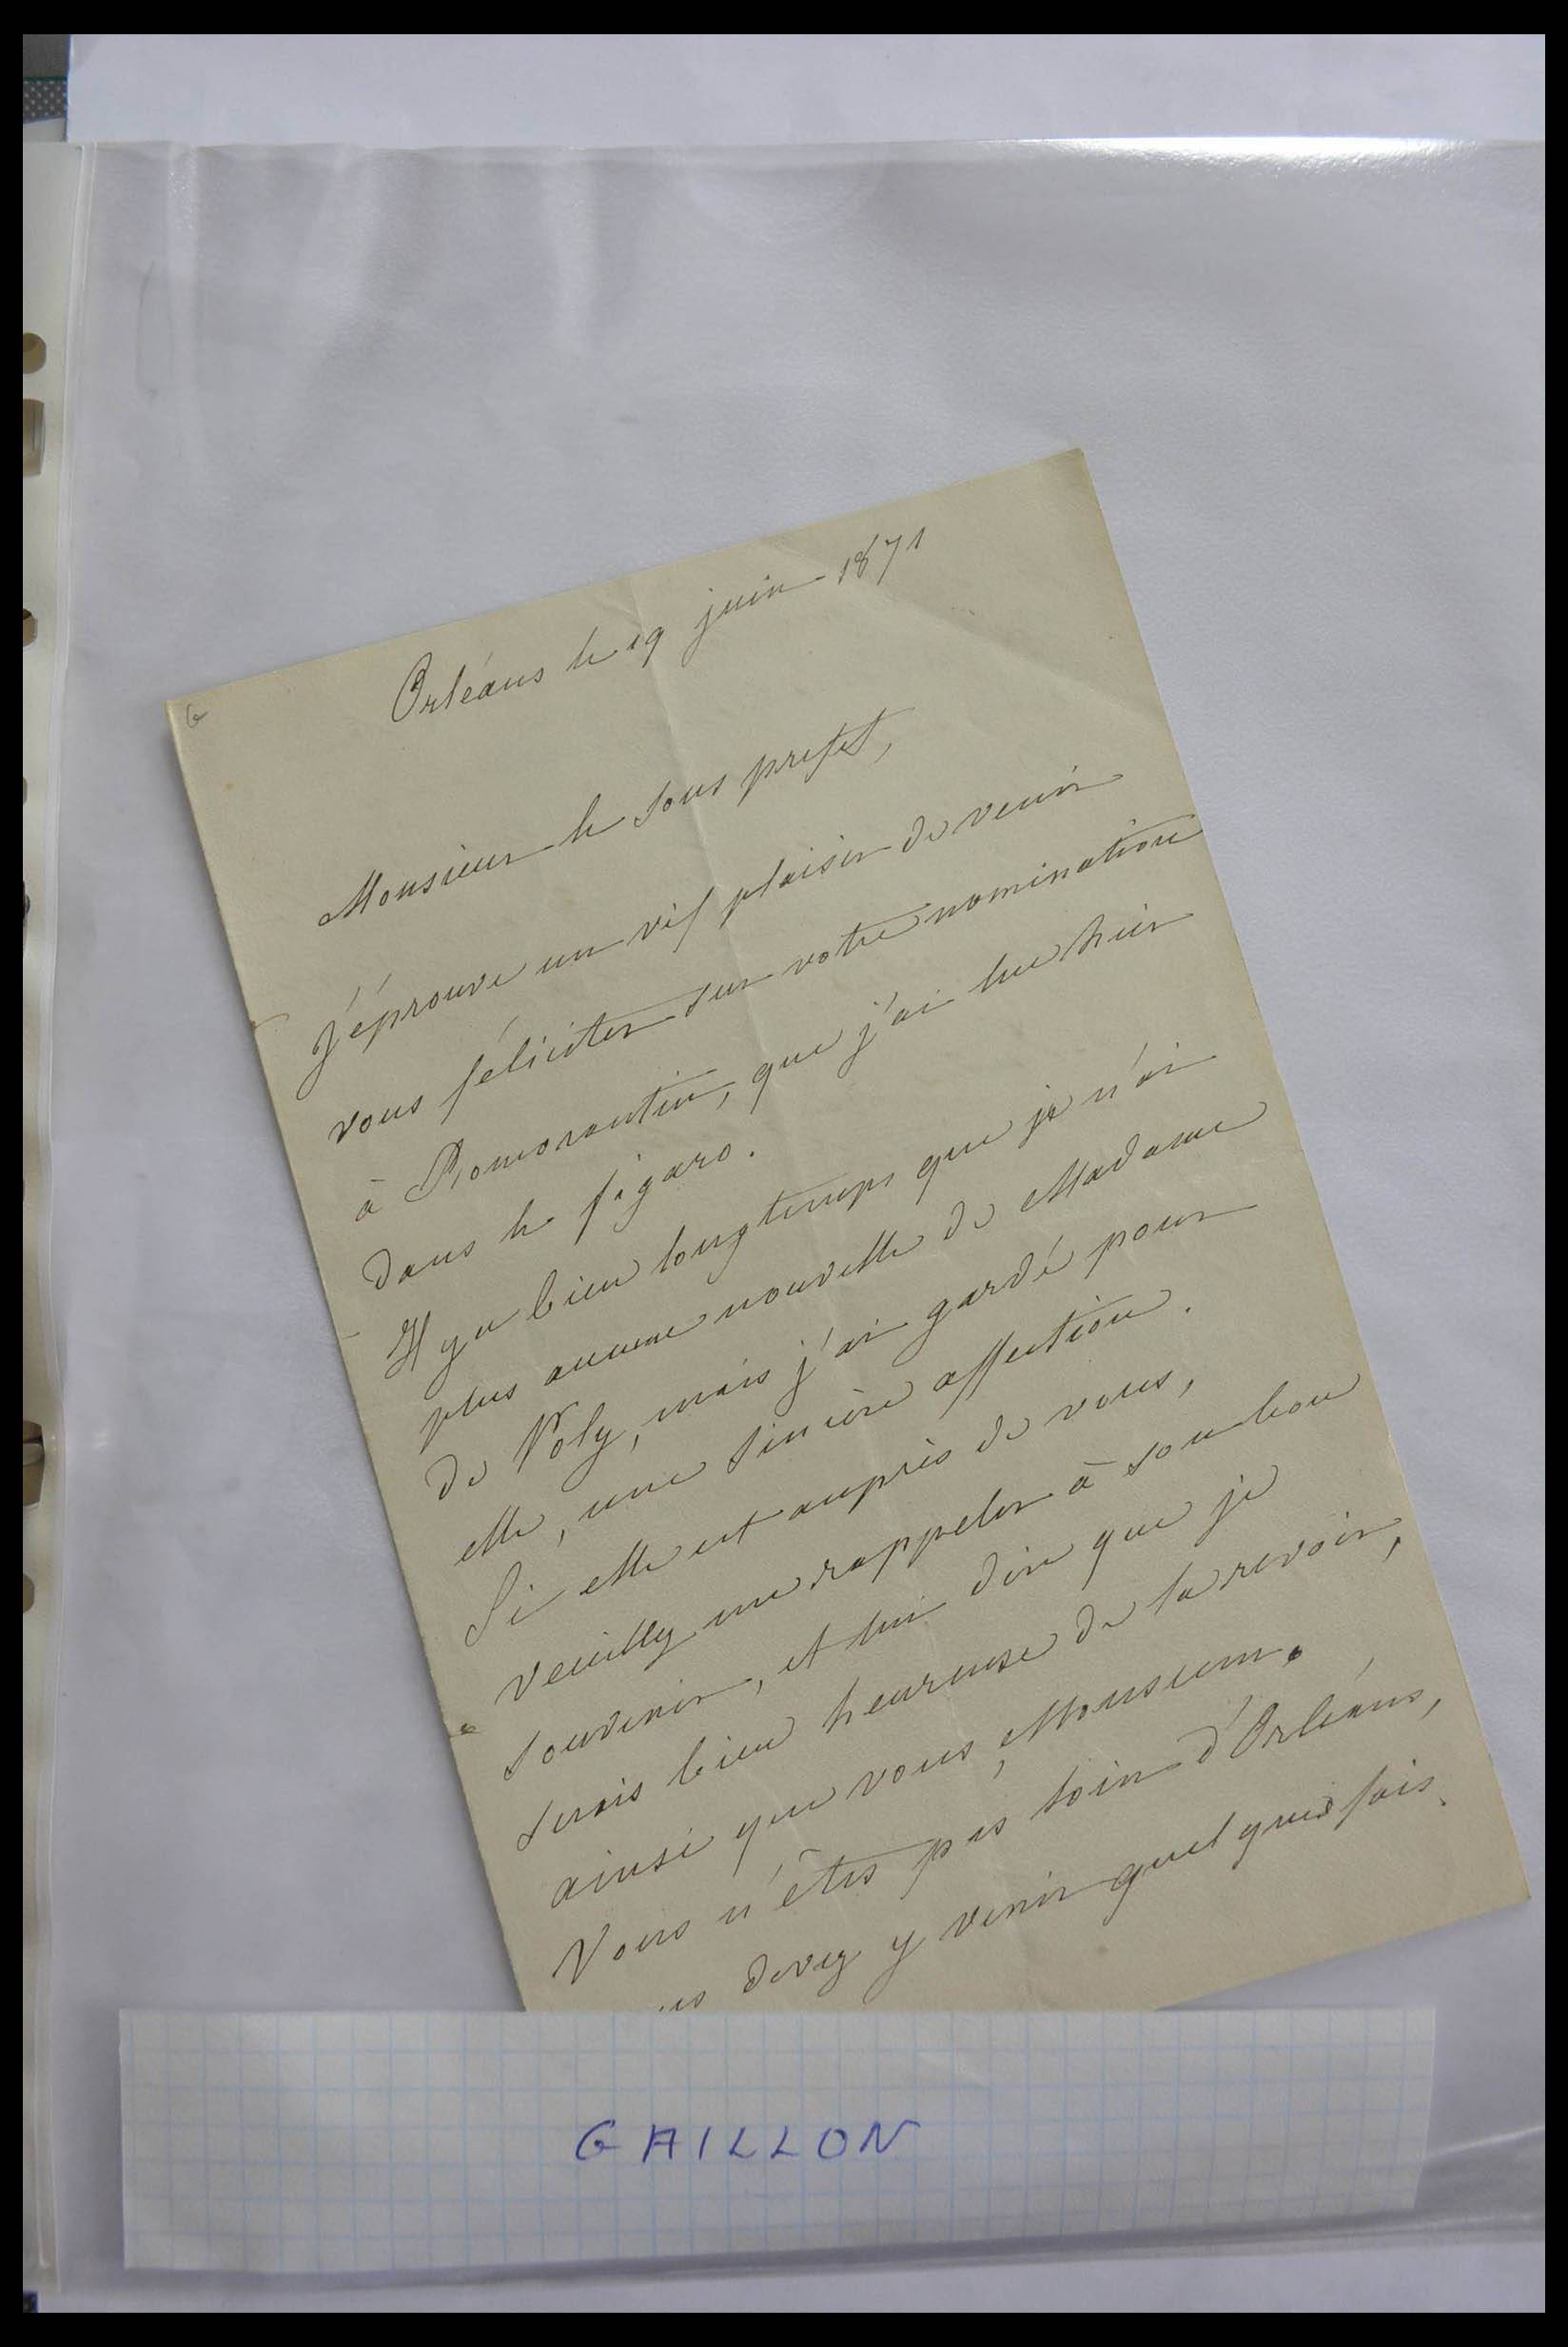 Orléans le 19 juin 1871
Monsieur le sous prefet,
J'éprouve un vif plaisir de venir
vous féliciter sur votre nomination
à Romorantin, que j'ai lue hier
dans le figaro.
Il y a bien longtemps que je n'ai
plus aucune nouvelle de Madame
de Voly, mais j'ai gardé pour
elle, une sincère affection.
Si elle est auprès de vous,
veuillez me rappeler à son bon
souvenir, et lui dire que je
serais bien heureuse de la revoir,
ainsi que vous, Monsieur.
Vous n'êtes pas loin d'Orléans,
devez y venir quelques fois.
GAILLON